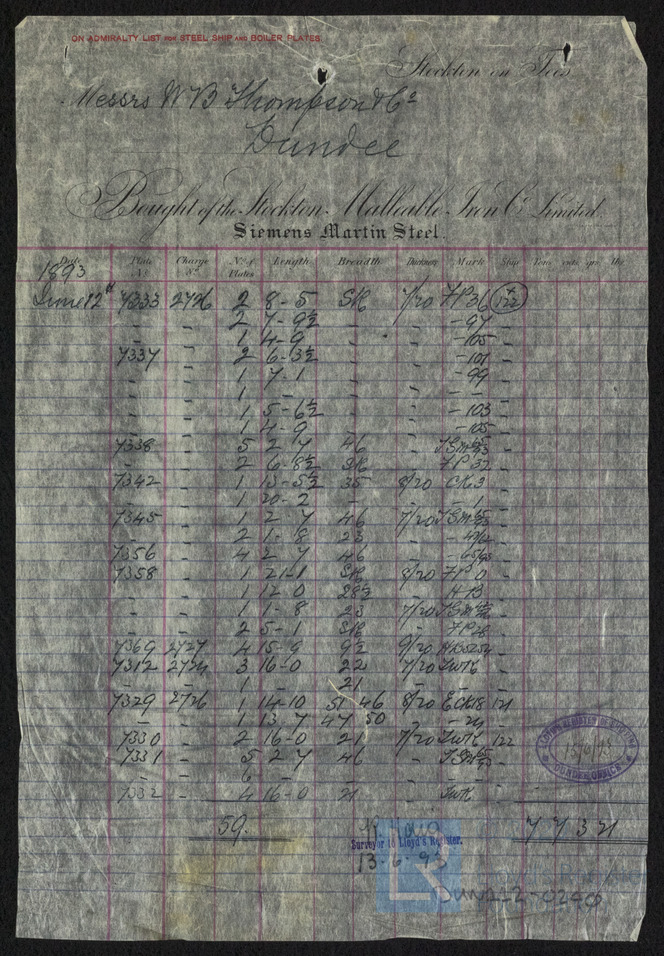 ON ADMIRALTY LIST FOR STEEL SHIP AND BOILER PLATES.
Stockton on Tees
Messrs W B Thompson & Co
Dundee
Bought of the Stockton Malleable Iron Co Limited.
Siemens Martin Steel.
Date Plate No. Charge No. No. of Plates Length Breadth Thickness Mark Ship Tons cwts qrs lbs
1893
June 12th 7333 2726 2 8-5 SK 7/20 FP36 122
" " 2 7-9½ " " -97 "
" " 1 4-9 " " -105 "
7337 " 2 6-3½ " " -101 "
" " 1 7-1 " " -99 "
" " 1 - " " - "
" " 1 5-6½ " " -103 "
" " 1 4-9 " " -105 "
7338 " 5 2 7 46 "
" " 2 6-8½ SK " FP 32 "
7342 " 1 15-5½ 35 8/20 CK3 "
" " 1 20-2 " " -1 "
7345 " 1 2 7 46 7/20 "
" " 2 1-8 23 "
7356 " 4 2 7 46 "
7358 " 1 21-1 SK 8/20 FP 0 "
" " 1 12 0 28½ " "
" " 1 1-8 23 7/20 "
" " 2 5-1 SK " FP28 "
7369 2727 4 15-9 9½ 9/20
7312 2724 3 16-0 22 7/20 TWK "
" " 1 - 21 " "
7329 2726 1 14-10 51 46 8/20 ECK18 121
" " 1 13.7 47 50 " -24 "
7330 " 2 16-0 21 7/20 TWK 122
7331 " 5 2 7 46 "
" " 6 - " "
7332 " 4 16-0 21 " TWK "
59. 7 7 3 21
Surveyor to Lloyd's Register.
13.6.93
LLOYD'S REGISTER OF SHIPPING
15/6/93
DUNDEE OFFICE
LR
DUN212-0240